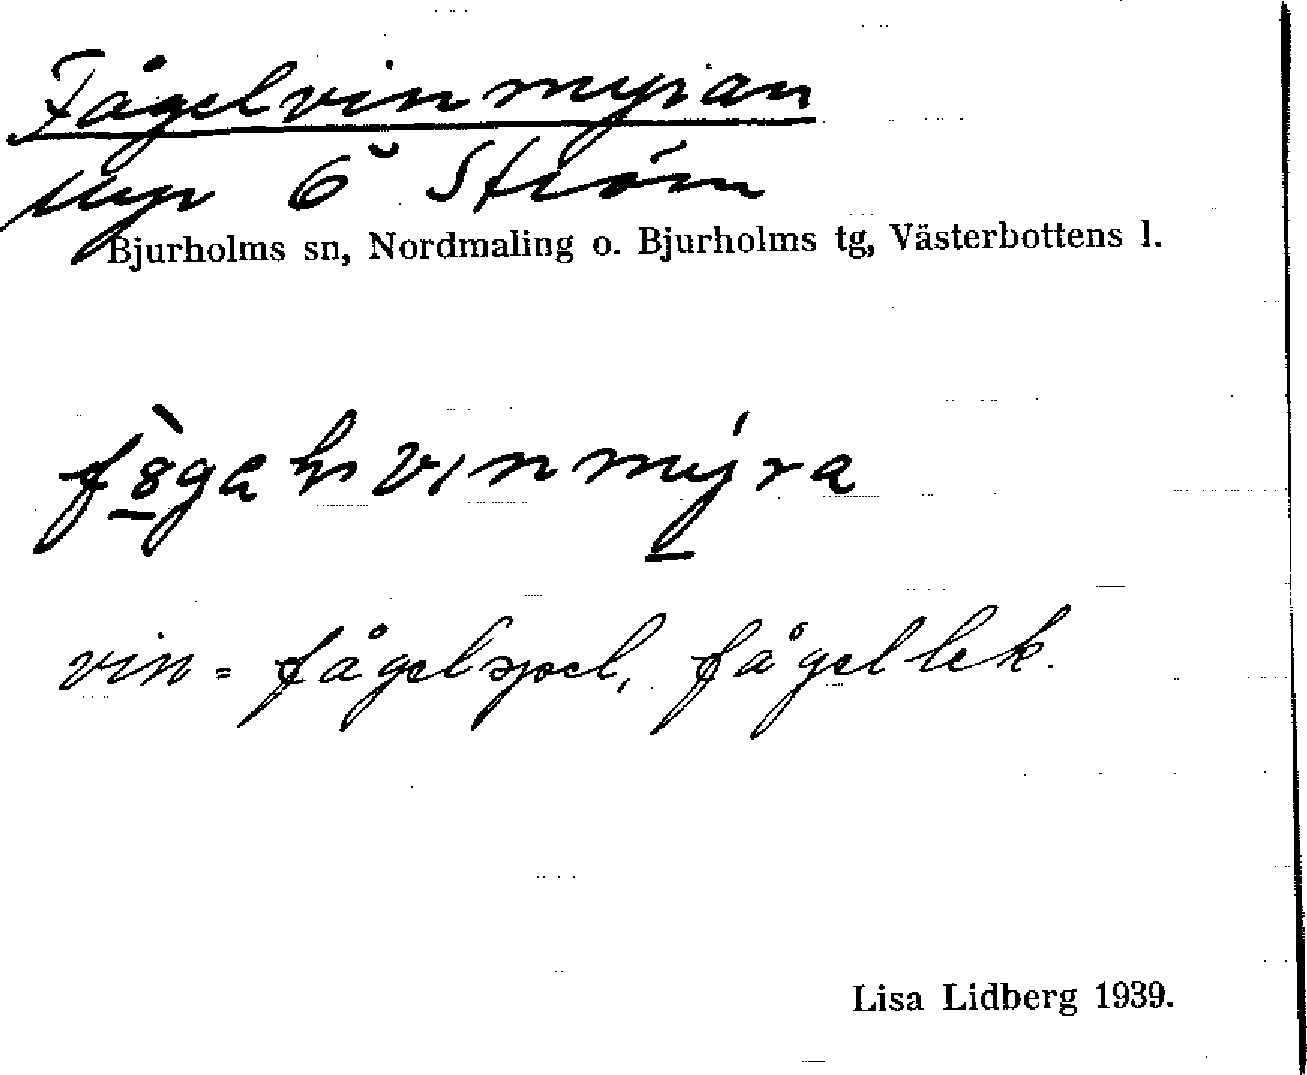 Fågelvinmyran
Myr 6 Ström
Bjurholms sn, Nordmaling o. Bjurholms tg, Västerbottens l.
vin = fågelspel, fågellek.
Lisa Lidberg 1939.